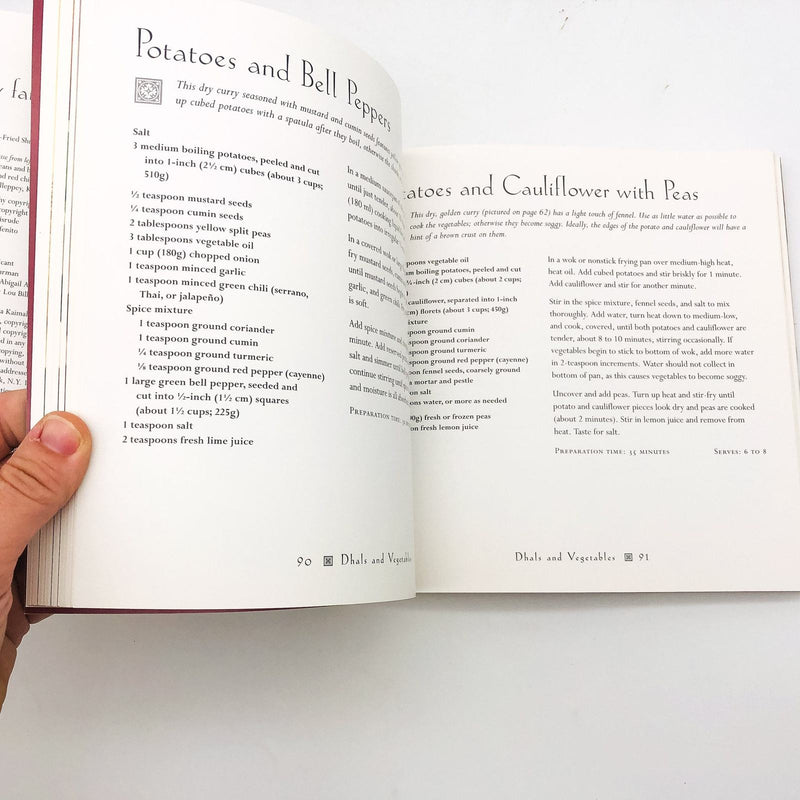 y fa
-Fried Sh
Alleppey, K
Potatoes and Bell Peppers
This dry curry seasoned with mustard and cumin seeds
up cubed potatoes with a spatula after they boil, otherwise the
Salt
3 medium boiling potatoes, peeled and cut
into 1-inch (2½ cm) cubes (about 3 cups;
510g)
½ teaspoon mustard seeds
¼ teaspoon cumin seeds
2 tablespoons yellow split peas
3 tablespoons vegetable oil
1 cup (180g) chopped onion
1 teaspoon minced garlic
1 teaspoon minced green chili (serrano,
Thai, or jalapeño)
Spice mixture
1 teaspoon ground coriander
1 teaspoon ground cumin
¼ teaspoon ground turmeric
⅛ teaspoon ground red pepper (cayenne)
1 large green bell pepper, seeded and
cut into ½-inch (1½ cm) squares
(about 1½ cups; 225g)
1 teaspoon salt
2 teaspoons fresh lime juice
In a medium
until just tender,
(180 ml) cooking
potatoes into
In a covered wok or
fry mustard seeds,
until mustard seeds
garlic, and green
is soft.
Add spice mixture
minute. Add reserved
salt and simmer
continue stirring
and moisture is all
Preparation time:
90 Dhals and Vegetables
atoes and Cauliflower with Peas
This dry, golden curry (pictured on page 62) has a light touch of fennel. Use as little water as possible to
cook the vegetables; otherwise they become soggy. Ideally, the edges of the potato and cauliflower will have a
hint of a brown crust on them.
spoons vegetable oil
m boiling potatoes, peeled and cut
-inch (2 cm) cubes (about 2 cups;
cauliflower, separated into 1-inch
cm) florets (about 3 cups; 450g)
ixture
spoon ground cumin
spoon ground coriander
spoon ground turmeric
spoon ground red pepper (cayenne)
oon fennel seeds, coarsely ground
a mortar and pestle
on salt
ons water, or more as needed
00g) fresh or frozen peas
on fresh lemon juice
In a wok or nonstick frying pan over medium-high heat,
heat oil. Add cubed potatoes and stir briskly for 1 minute.
Add cauliflower and stir for another minute.
Stir in the spice mixture, fennel seeds, and salt to mix
thoroughly. Add water, turn heat down to medium-low,
and cook, covered, until both potatoes and cauliflower are
tender, about 8 to 10 minutes, stirring occasionally. If
vegetables begin to stick to bottom of wok, add more water
in 2-teaspoon increments. Water should not collect in
bottom of pan, as this causes vegetables to become soggy.
Uncover and add peas. Turn up heat and stir-fry until
potato and cauliflower pieces look dry and peas are cooked
(about 2 minutes). Stir in lemon juice and remove from
heat. Taste for salt.
Preparation time: 35 minutes Serves: 6 to 8
Dhals and Vegetables 91